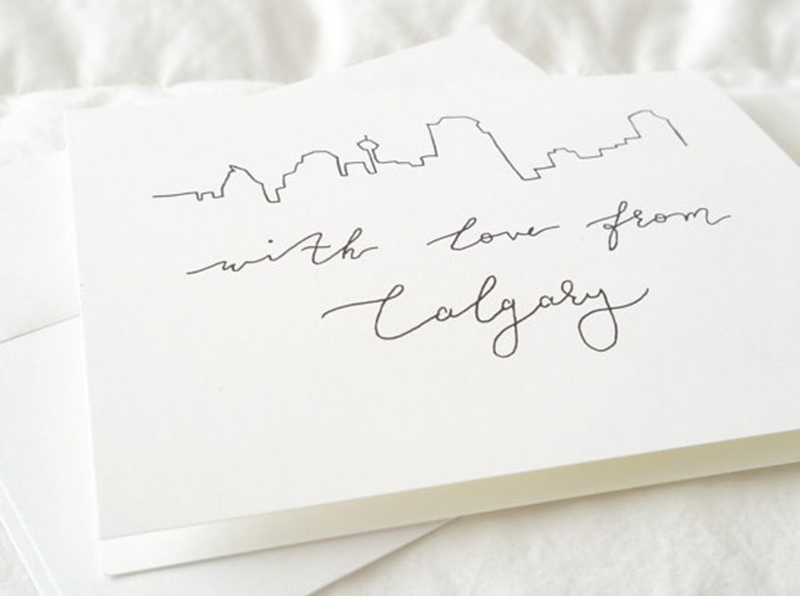 with love from
Calgary